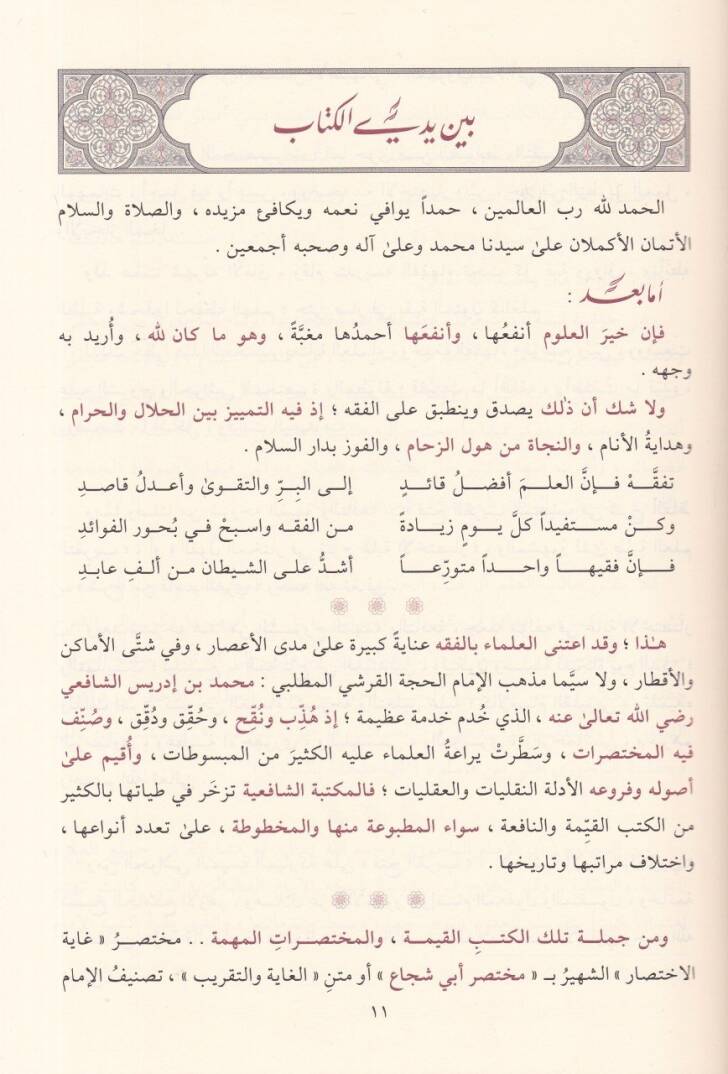 بين يدي الكتاب
الحمد لله رب العالمين ، حمداً يوافي نعمه ويكافئ مزيده ، والصلاة والسلام
الأتمان الأكملان علىٰ سيدنا محمد وعلىٰ آله وصحبه أجمعين .
أما بعد :
فإن خيرَ العلوم أنفعُها ، وأنفعَها أحمدُها مغبَّةً ، وهو ما كان لله ، وأُريد به
وجهه .
ولا شك أن ذٰلك يصدق وينطبق على الفقه ؛ إذ فيه التمييز بين الحلال والحرام ،
وهدايةُ الأنام ، والنجاة من هول الزحام ، والفوز بدار السلام .
تفقَّهْ فإنَّ العلمَ أفضلُ قائدٍ إلى البِرِّ والتقوىٰ وأعدلُ قاصدِ
وكنْ مستفيداً كلَّ يومٍ زيادةً من الفقه واسبحْ في بُحور الفوائدِ
فإنَّ فقيهاً واحداً متورِّعاً أشدُّ على الشيطان من ألفِ عابدِ
هٰذا ؛ وقد اعتنى العلماء بالفقه عنايةً كبيرة علىٰ مدى الأعصار ، وفي شتَّى الأماكن
والأقطار ، ولا سيَّما مذهب الإمام الحجة القرشي المطلبي : محمد بن إدريس الشافعي
رضي الله تعالىٰ عنه ، الذي خُدم خدمة عظيمة ؛ إذ هُذِّب ونُقِّح ، وحُقِّق ودُقِّق ، وصُنِّف
فيه المختصرات ، وسَطَّرتْ يراعةُ العلماء عليه الكثيرَ من المبسوطات ، وأُقيم علىٰ
أصوله وفروعه الأدلة النقليات والعقليات ؛ فالمكتبة الشافعية تزخَر في طياتها بالكثير
من الكتب القيِّمة والنافعة ، سواء المطبوعة منها والمخطوطة ، علىٰ تعدد أنواعها ،
واختلاف مراتبها وتاريخها .
ومن جملة تلك الكتبِ القيمة ، والمختصراتِ المهمة .. مختصرُ « غاية
الاختصار » الشهيرُ بـ « مختصر أبي شجاع » أو متنِ « الغاية والتقريب » ، تصنيفُ الإمام
١١